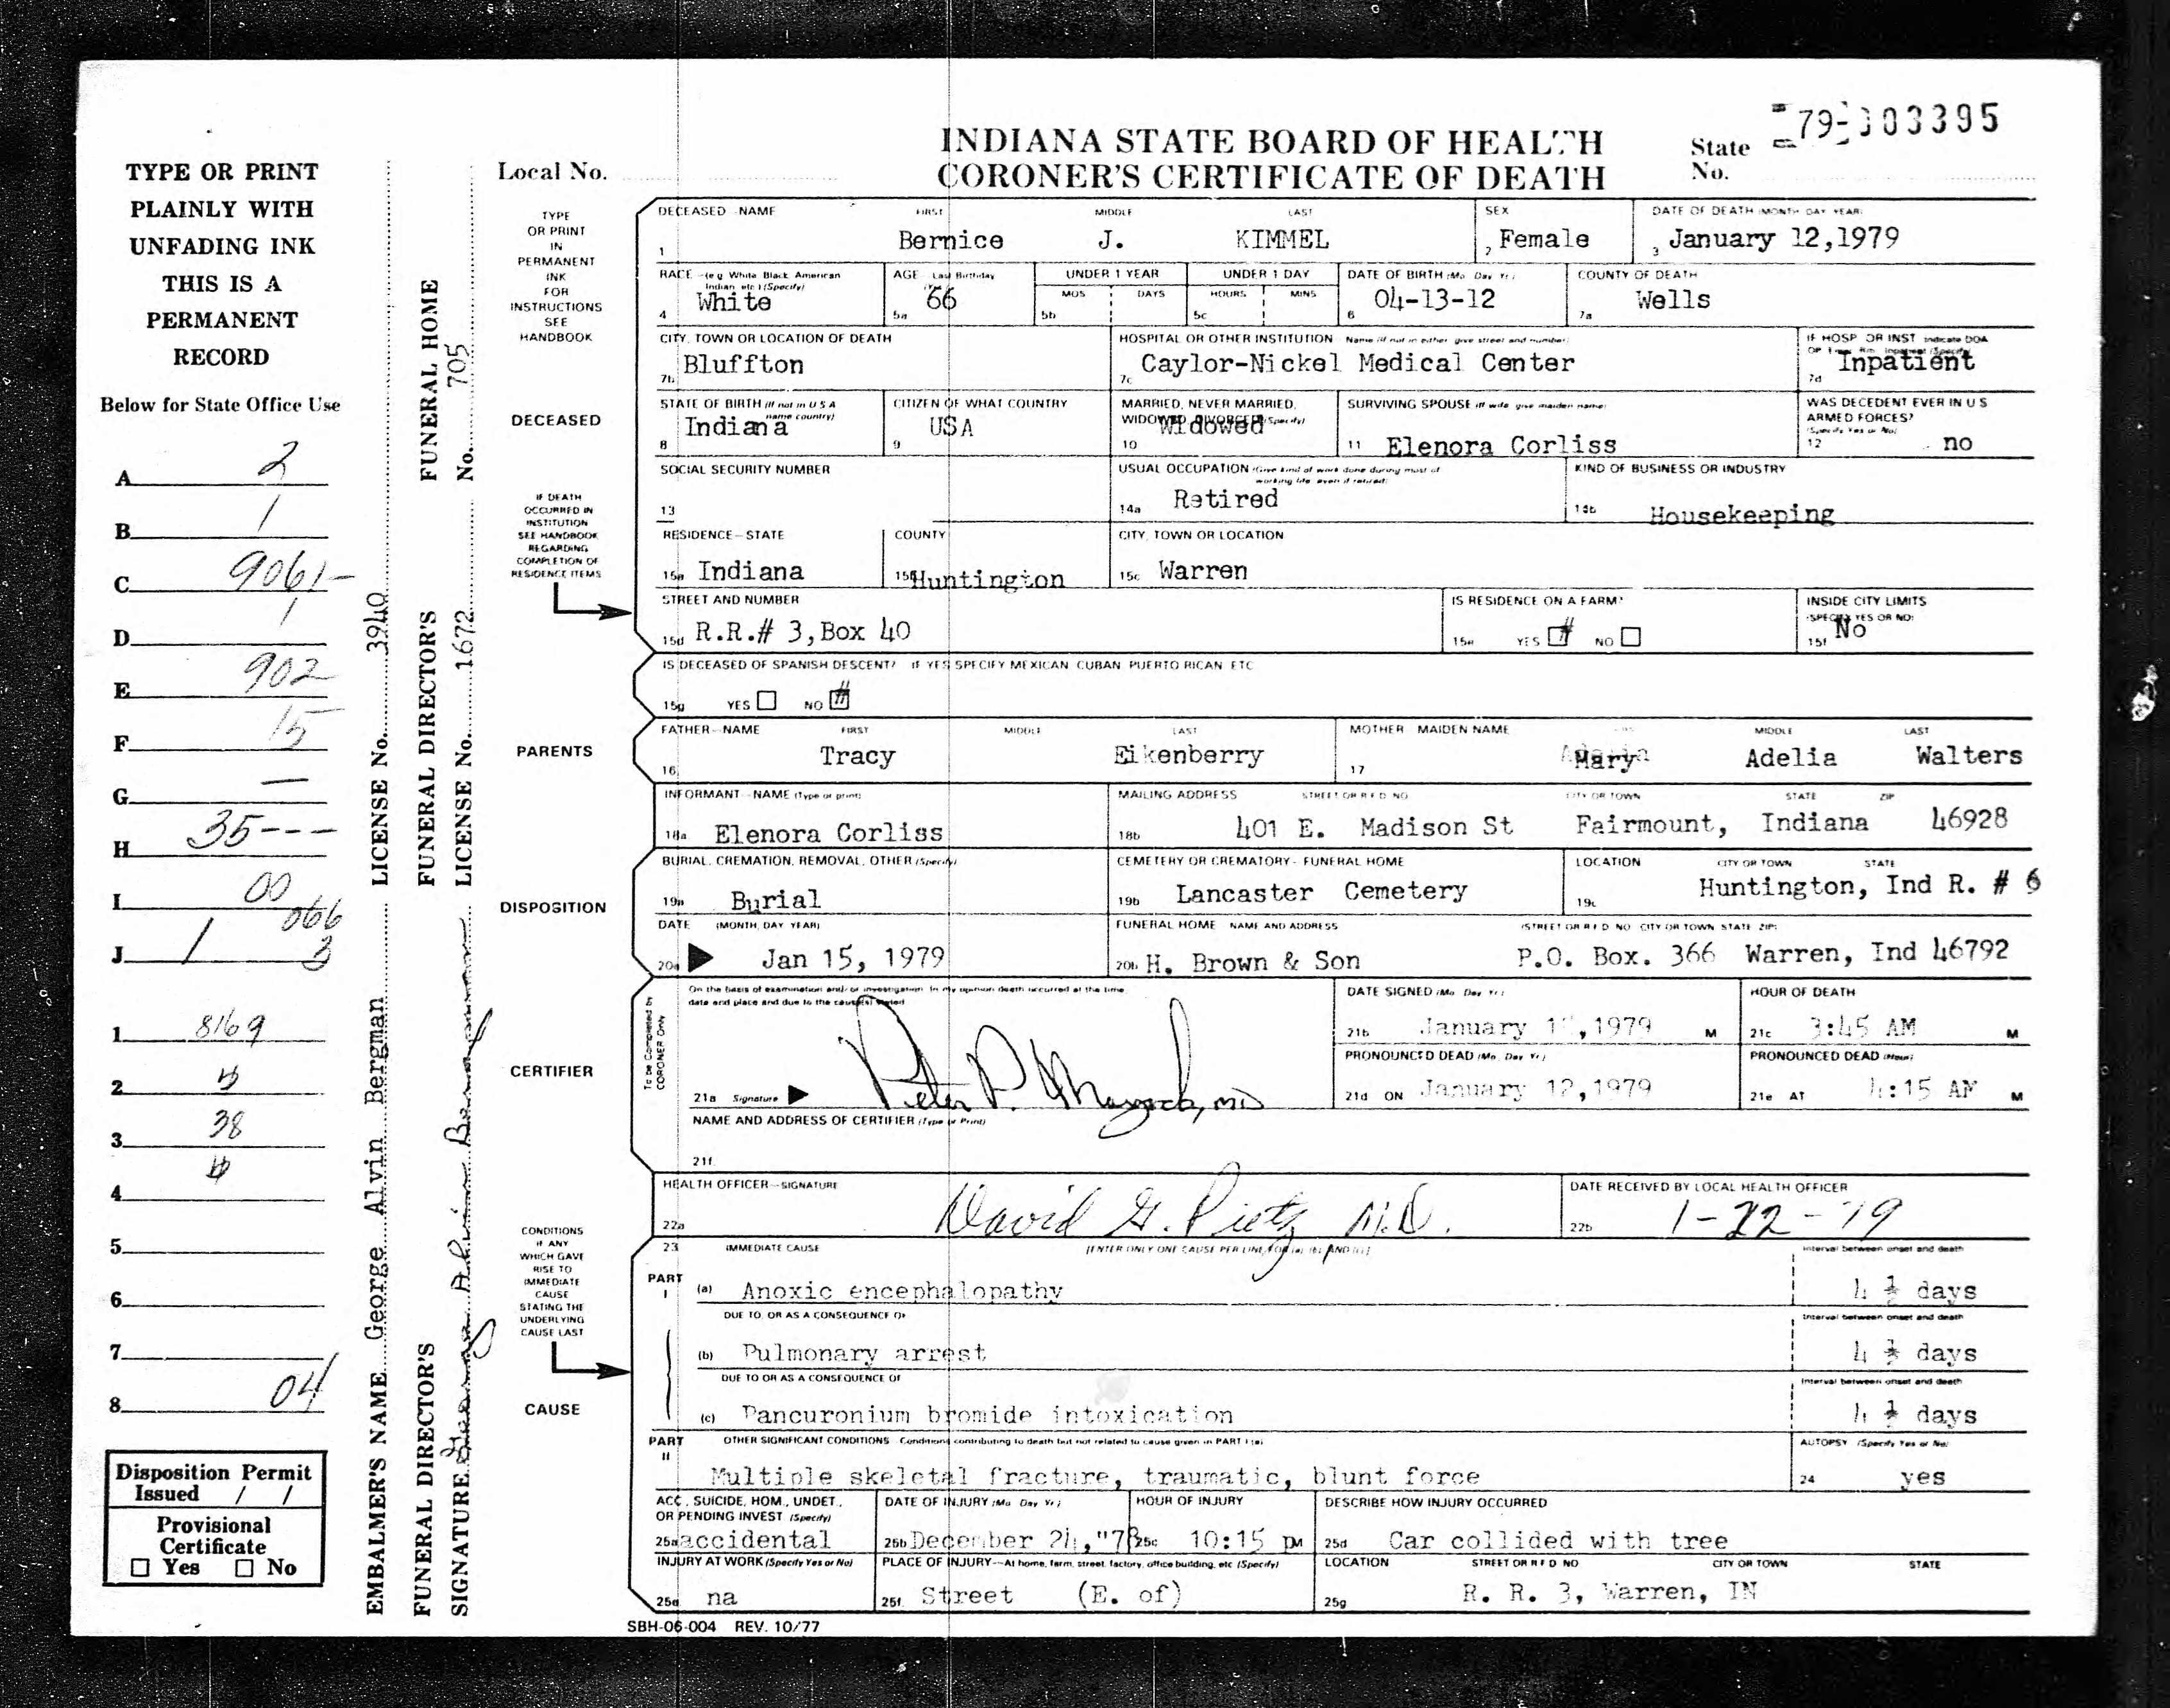 INDIANA STATE BOARD OF HEALTH
CORONER'S CERTIFICATE OF DEATH
State No. 79-003395
Local No.
TYPE OR PRINT
PLAINLY WITH
UNFADING INK
THIS IS A
PERMANENT
RECORD
Below for State Office Use
A 2
B 1
C 9061-
D 1
E 902
F 15
G —
H 35---
I 00
066
J 1 3
1 8169
2
3 38
4
5
6
7
8 04
Disposition Permit
Issued / /
Provisional
Certificate
☐ Yes ☐ No
EMBALMER'S NAME George Alvin Bergman LICENSE No. 3940
FUNERAL DIRECTOR'S SIGNATURE George Alvin Bergman
FUNERAL DIRECTOR'S LICENSE No. 1672
FUNERAL HOME No. 705
TYPE
OR PRINT
IN
PERMANENT
INK
FOR
INSTRUCTIONS
SEE
HANDBOOK
DECEASED
IF DEATH
OCCURRED IN
INSTITUTION
SEE HANDBOOK
REGARDING
COMPLETION OF
RESIDENCE ITEMS
PARENTS
DISPOSITION
CERTIFIER
CONDITIONS
IF ANY
WHICH GAVE
RISE TO
IMMEDIATE
CAUSE
STATING THE
UNDERLYING
CAUSE LAST
CAUSE
DECEASED—NAME FIRST MIDDLE LAST SEX DATE OF DEATH (MONTH, DAY, YEAR)
1 Bernice J. KIMMEL 2 Female 3 January 12,1979
RACE—(e.g. White, Black, American Indian, etc.) (Specify) AGE—Last Birthday (Yrs.) UNDER 1 YEAR UNDER 1 DAY DATE OF BIRTH (Mo. Day, Yr.) COUNTY OF DEATH
MOS DAYS HOURS MINS
4 White 5a 66 5b 5c 6 04-13-12 7a Wells
CITY, TOWN OR LOCATION OF DEATH HOSPITAL OR OTHER INSTITUTION—Name (If not in either, give street and number) IF HOSP OR INST Indicate DOA OP/Emer. Rm. Inpatient (Specify)
7b Bluffton 7c Caylor-Nickel Medical Center 7d Inpatient
STATE OF BIRTH (If not in U S A name country) CITIZEN OF WHAT COUNTRY MARRIED, NEVER MARRIED, WIDOWED, DIVORCED (Specify) SURVIVING SPOUSE (If wife, give maiden name) WAS DECEDENT EVER IN U S ARMED FORCES? (Specify Yes or No)
8 Indiana 9 USA 10 Widowed 11 Elenora Corliss 12 no
SOCIAL SECURITY NUMBER USUAL OCCUPATION (Give kind of work done during most of working life, even if retired) KIND OF BUSINESS OR INDUSTRY
13 14a Retired 14b Housekeeping
RESIDENCE—STATE COUNTY CITY, TOWN OR LOCATION
15a Indiana 15b Huntington 15c Warren
STREET AND NUMBER IS RESIDENCE ON A FARM? INSIDE CITY LIMITS (SPECIFY YES OR NO)
15d R.R.# 3,Box 40 15e YES # NO ☐ 15f No
IS DECEASED OF SPANISH DESCENT? IF YES SPECIFY MEXICAN, CUBAN, PUERTO RICAN, ETC
15g YES ☐ NO #
FATHER—NAME FIRST MIDDLE LAST MOTHER—MAIDEN NAME MIDDLE LAST
16 Tracy Eikenberry 17 Mary Adelia Walters
INFORMANT—NAME (Type or print) MAILING ADDRESS STREET OR R.F.D. NO CITY OR TOWN STATE ZIP
18a Elenora Corliss 18b 401 E. Madison St Fairmount, Indiana 46928
BURIAL, CREMATION, REMOVAL, OTHER (Specify) CEMETERY OR CREMATORY—FUNERAL HOME LOCATION CITY OR TOWN STATE
19a Burial 19b Lancaster Cemetery 19c Huntington, Ind R. # 6
DATE (MONTH, DAY, YEAR) FUNERAL HOME—NAME AND ADDRESS (STREET OR R.F.D. NO. CITY OR TOWN STATE ZIP)
20a Jan 15, 1979 20b H. Brown & Son P.O. Box. 366 Warren, Ind 46792
To be Completed by CORONER Only
On the basis of examination and/or investigation, in my opinion death occurred at the time, date and place and due to the cause(s) stated
21a Signature Peter P.
DATE SIGNED (Mo. Day, Yr.) HOUR OF DEATH
21b January ,1979 M 21c 3:45 AM M
PRONOUNCED DEAD (Mo. Day, Yr.) PRONOUNCED DEAD (Hour)
21d ON January 12,1979 21e AT 4:15 AM M
NAME AND ADDRESS OF CERTIFIER (Type or Print)
21f.
HEALTH OFFICER—SIGNATURE DATE RECEIVED BY LOCAL HEALTH OFFICER
22a David G. Pietz M.D. 22b 1-22-79
23 IMMEDIATE CAUSE [ENTER ONLY ONE CAUSE PER LINE FOR (a), (b), AND (c)] Interval between onset and death
PART I (a) Anoxic encephalopathy 4 ½ days
DUE TO, OR AS A CONSEQUENCE OF Interval between onset and death
(b) Pulmonary arrest 4 ½ days
DUE TO OR AS A CONSEQUENCE OF Interval between onset and death
(c) Pancuronium bromide intoxication 4 ½ days
PART II OTHER SIGNIFICANT CONDITIONS—Conditions contributing to death but not related to cause given in PART I (a) AUTOPSY (Specify Yes or No)
Multiple skeletal fracture, traumatic, blunt force 24 yes
ACC., SUICIDE, HOM., UNDET., OR PENDING INVEST. (Specify) DATE OF INJURY (Mo. Day, Yr.) HOUR OF INJURY DESCRIBE HOW INJURY OCCURRED
25a accidental 25b December 24,"78 25c 10:15 PM 25d Car collided with tree
INJURY AT WORK (Specify Yes or No) PLACE OF INJURY—At home, farm, street, factory, office building, etc (Specify) LOCATION STREET OR R F D NO CITY OR TOWN STATE
25e na 25f. Street (E. of) 25g R. R. 3, Warren, IN
SBH-06-004 REV. 10/77